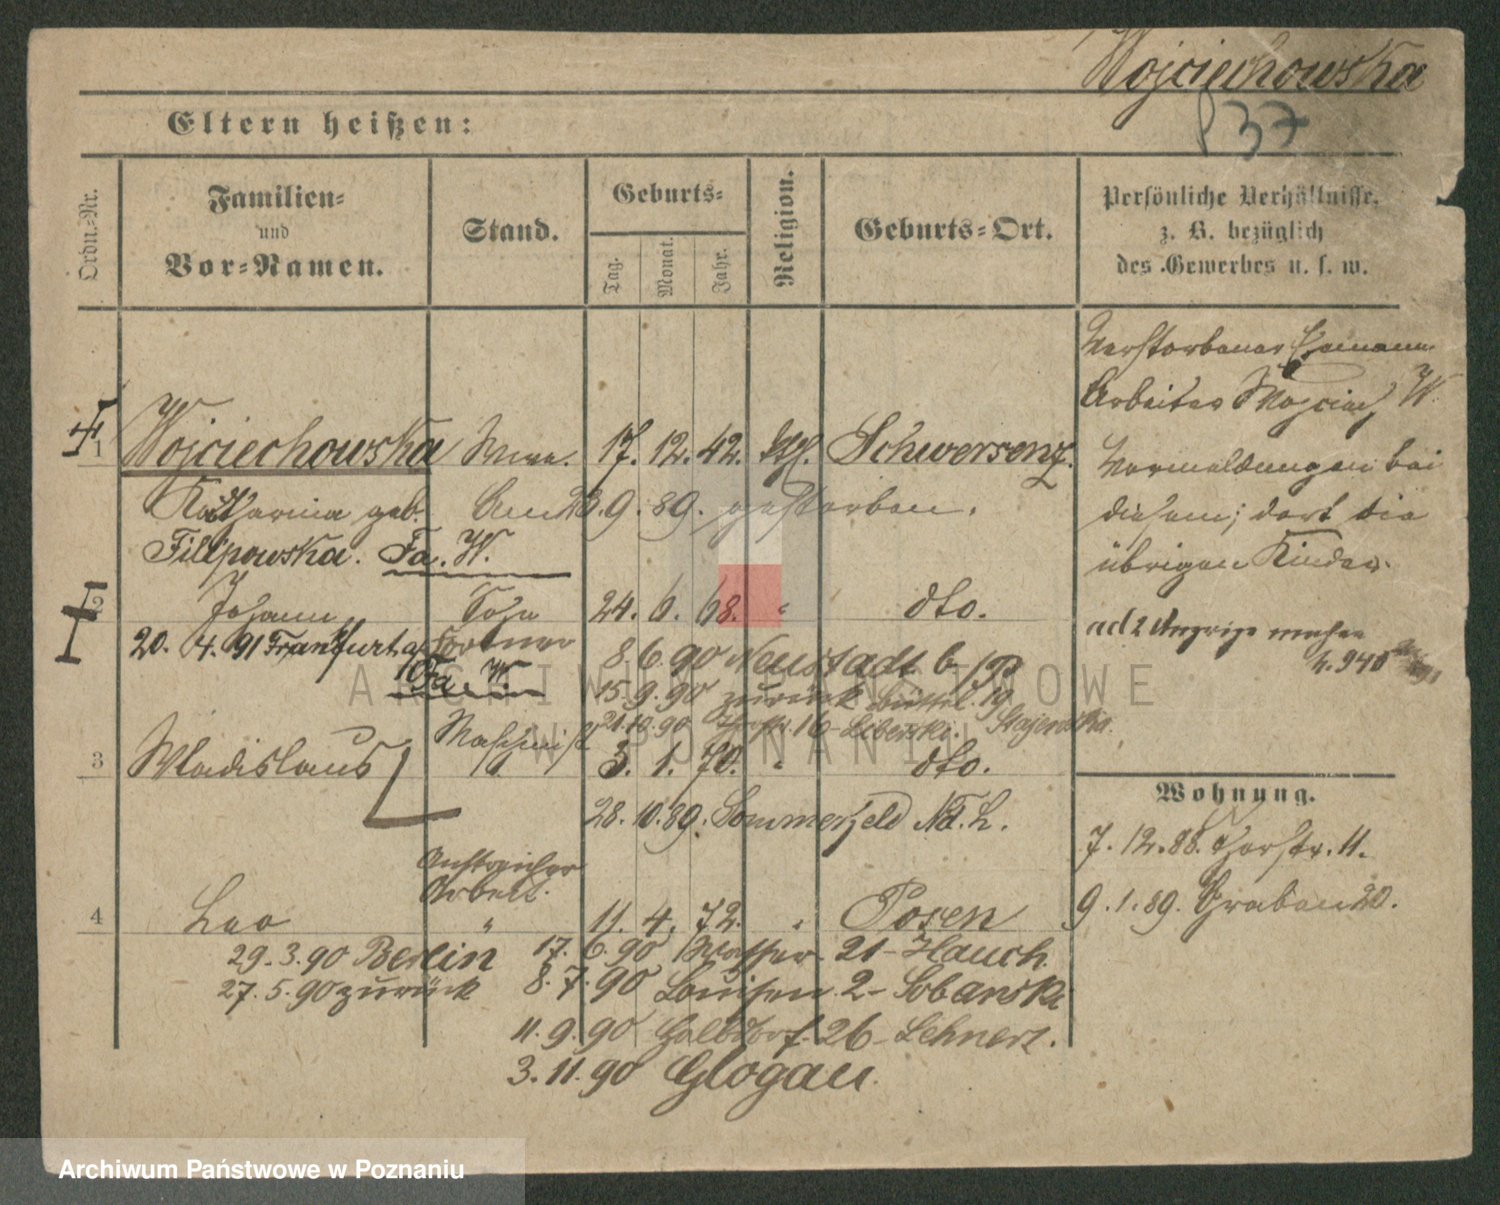 Wojciechowska
P 37
Eltern heißen:
Ordn.-Nr.
Familien-
und
Vor-Namen.
Stand.
Geburts-
Tag.
Monat.
Jahr.
Religion.
Geburts-Ort.
Persönliche Verhältnisse,
z. B. bezüglich
des Gewerbes u. s. w.
Verstorbener Ehemann
Arbeiter Wojciech W.
1 Wojciechowska Wwe. 17. 12. 42. kth. Schwersenz.
Vermeldungen bei
Katharina geb. Am 23. 9. 89. gestorben.
diesem; dort die
Filipowska. Fa. W.
übrigen Kinder.
2 Johann Sohn 24. 6. 68. " dto.
ad 2 Anzeige
20. 4. 91 Frankfurt a/O
8 6 90 Neustadt b/P
Fa. W.
15. 9. 90 zurück 19
21. 10. 90 16 - Liberski.
3 Wladislaus 3. 1. 70. " dto.
28. 10. 89. Sommerfeld N. L.
Wohnung.
7. 12. 88. Thorstr. 11.
Anstreicher
Arbeit.
4 Leo " 11. 4. 72. " Posen
9. 1. 89. Graben 20.
29. 3. 90 Berlin 17. 6. 90 Wasser 21 - Hauch
27. 5. 90 zurück 8. 7. 90 Louisen 2 - Sobanski
11. 9. 90 Halbdorf 26 - Lehnert.
3. 11. 90 Glogau.
ARCHIWUM PAŃSTWOWE
W POZNANIU
Archiwum Państwowe w Poznaniu